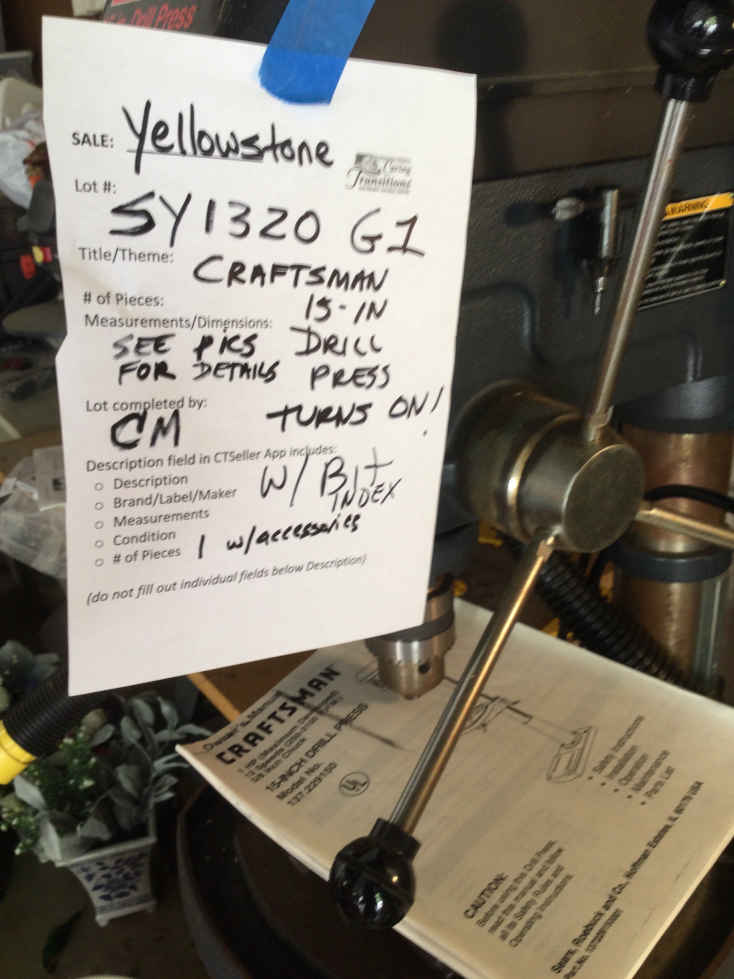 Drill Press
SALE: Yellowstone
Caring
Transitions
Lot #:
SY1320 G1
Title/Theme: CRAFTSMAN
# of Pieces: 15-IN
Measurements/Dimensions:
SEE PICS DRILL
FOR DETAILS PRESS
Lot completed by: TURNS ON!
CM
Description field in CTSeller App includes:
○ Description
○ Brand/Label/Maker W/ Bit
○ Measurements INDEX
○ Condition
○ # of Pieces 1 w/accessories
(do not fill out individual fields below Description)
WARNING
Owner's Manual
CRAFTSMAN
15-INCH DRILL PRESS
Model No.
137.229150
UL
• Safety Instructions
• Installation
• Operation
• Maintenance
• Parts List
CAUTION:
Before using this Drill Press,
read this manual and follow
all its Safety Rules and
Operating Instructions
Sears, Roebuck and Co., Hoffman Estates, IL 60179 USA